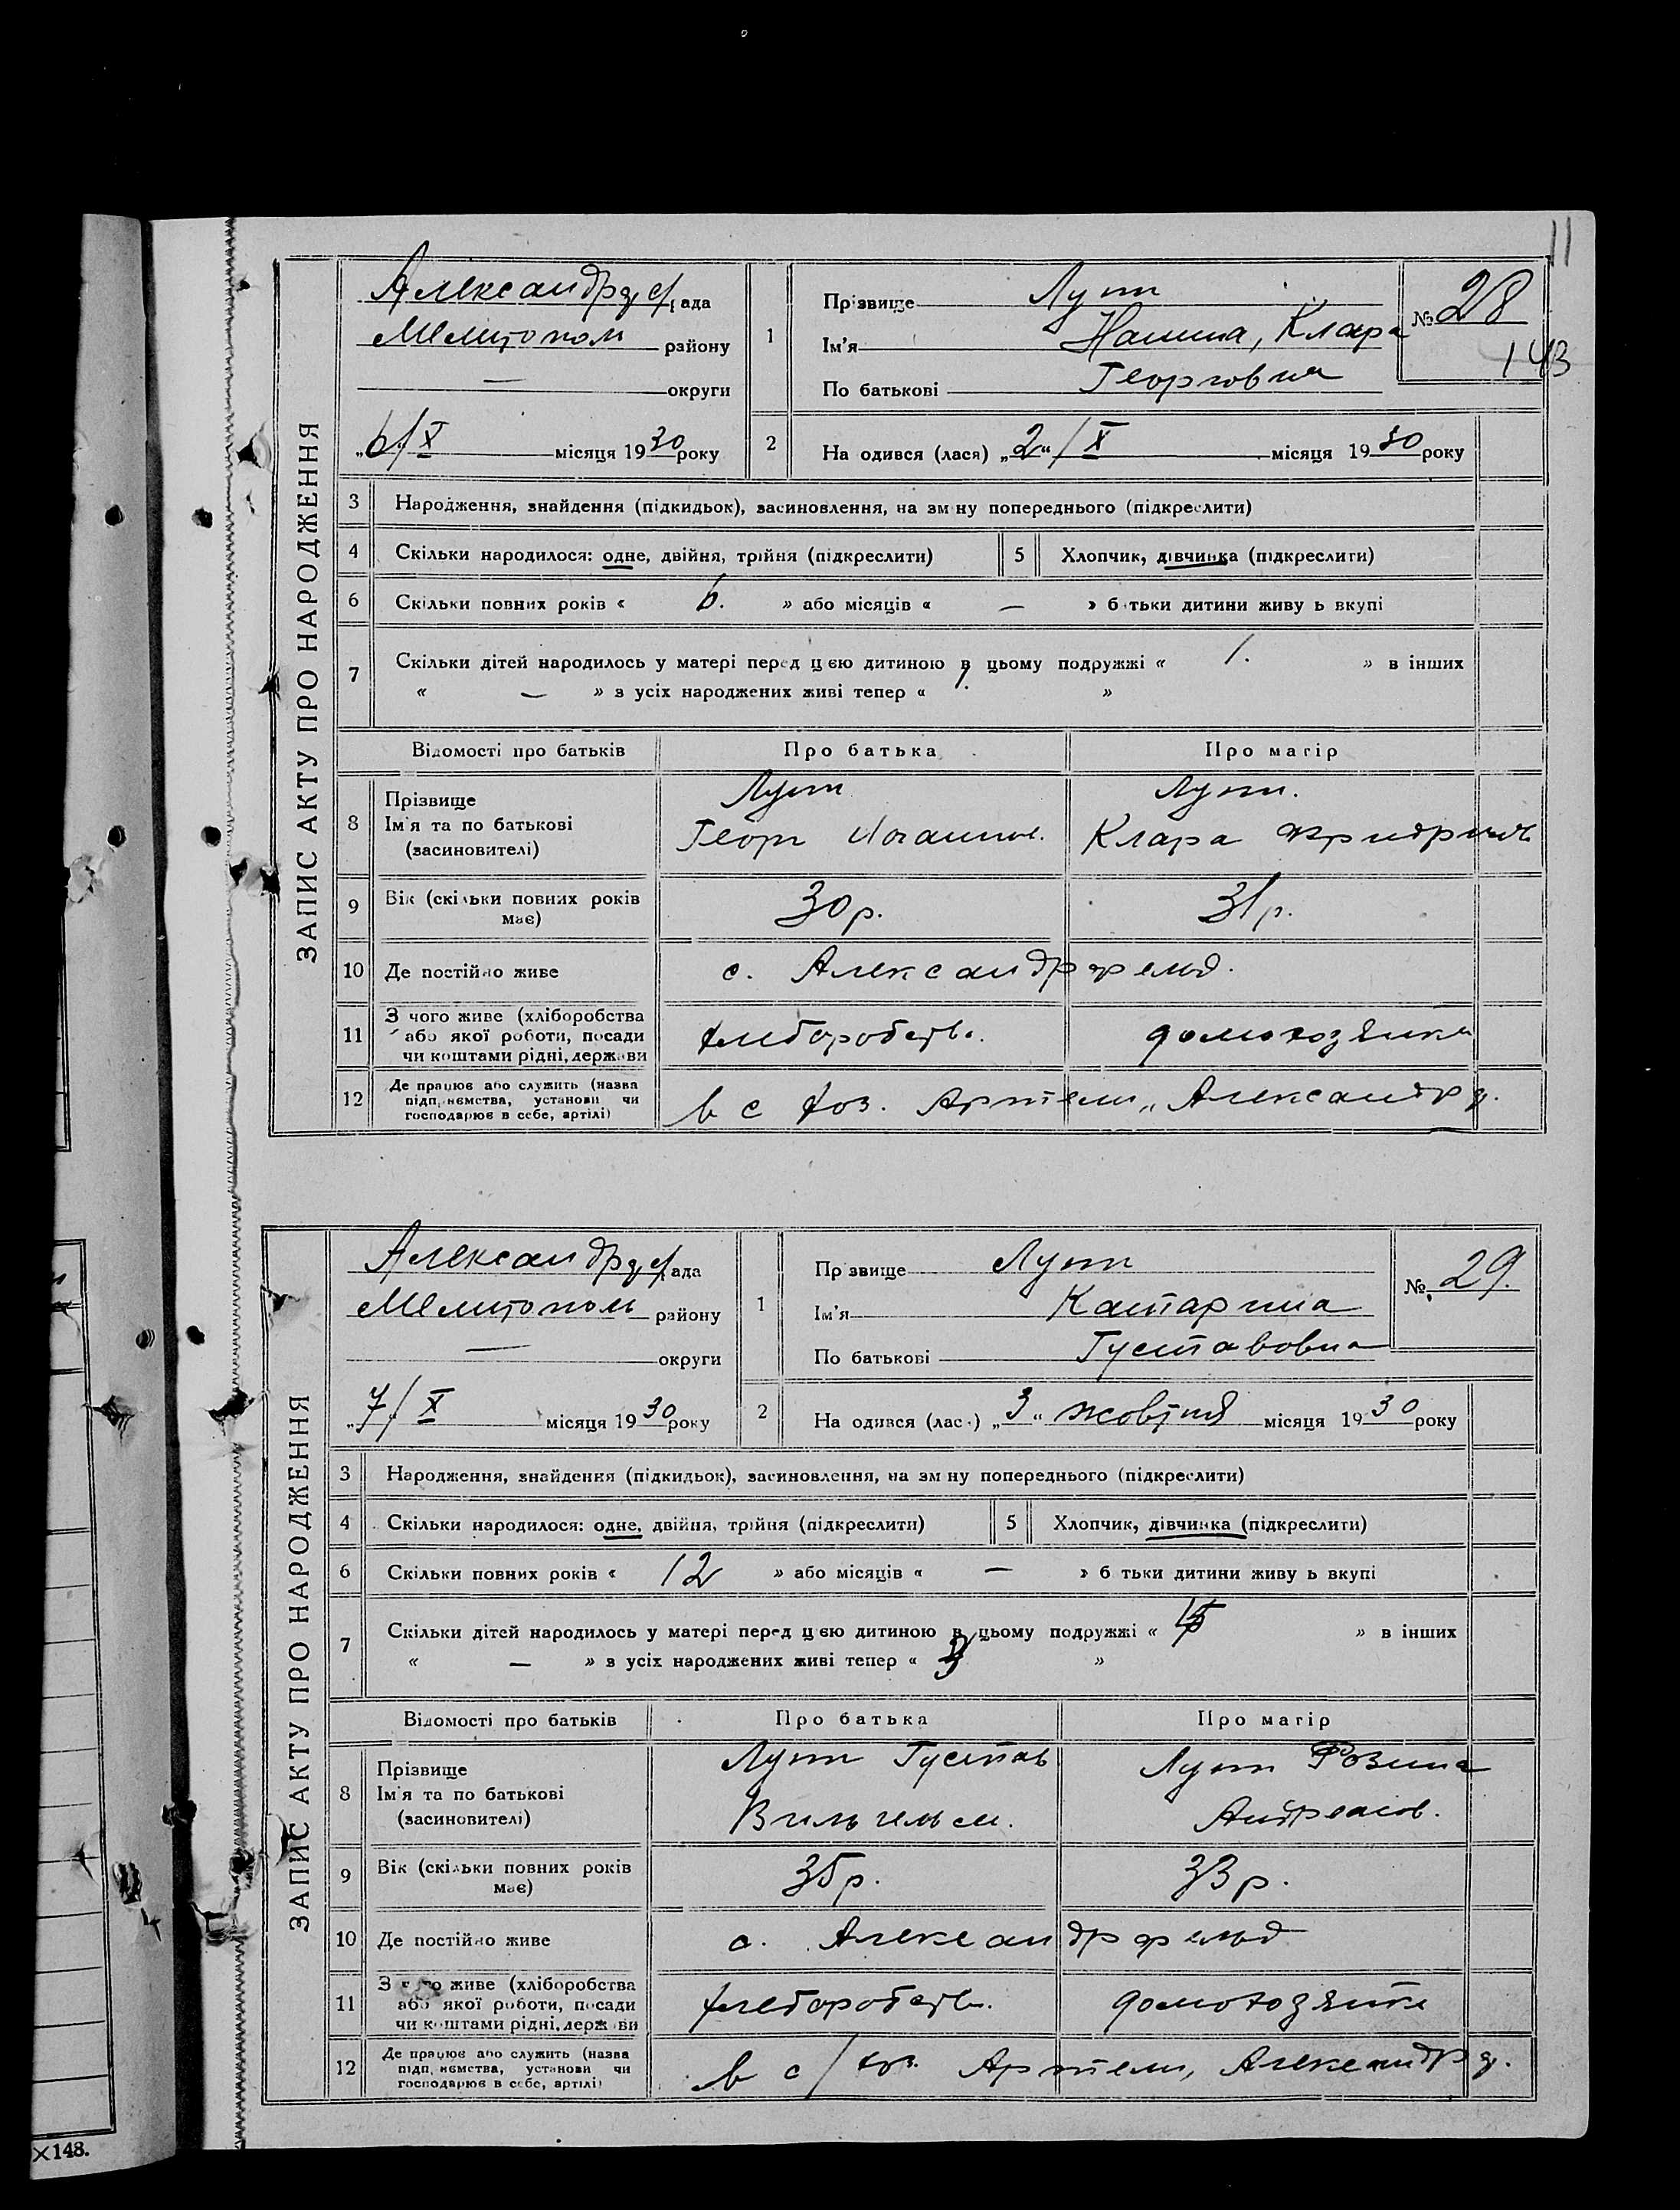 11
ЗАПИС АКТУ ПРО НАРОДЖЕННЯ
Александр с/рада
Мелитополь району
— округи
„6/X місяця 1930 року
1
Прізвище Лутт
Ім'я Нанина, Клара
По батькові Георговна
№ 28
143
2 На одився (лася) „2“/X місяця 1930 року
3 Народження, знайдення (підкидьок), засиновлення, на зм ну попереднього (підкреслити)
4 Скільки народилося: одне, двійня, трійня (підкреслити)
5 Хлопчик, дівчинка (підкреслити)
6 Скільки повних років « 6. » або місяців « — » б тьки дитини живу ь вкупі
7 Скільки дітей народилось у матері перед цєю дитиною в цьому подружжі « 1. » в інших
« — » з усіх народжених живі тепер « 1. »
Відомості про батьків Про батька Про матір
8 Прізвище Ім'я та по батькові (засиновителі)
Лутт Георг Иоганнов.
Лутт. Клара Фридрихов
9 Вік (скільки повних років має) 30 р. 31 р.
10 Де постійно живе с. Александрфельд.
11 З чого живе (хліборобства або якої роботи, посади чи коштами рідні, держави
хлеборобств. домохозяйка
12 Де працює або служить (назва підп, ємства, установи чи господарює в себе, артілі)
в с хоз. Артели „Александрф.
ЗАПИС АКТУ ПРО НАРОДЖЕННЯ
Александр с/рада
Мелитополь району
— округи
„7/X місяця 1930 року
1
Пр звище Лутт
Ім'я Катарина
По батькові Густавовна
№ 29.
2 На одився (лас ) „3“ жовтня місяця 1930 року
3 Народження, знайдення (підкидьок), засиновлення, на зм ну попереднього (підкреслити)
4 Скільки народилося: одне, двійня, трійня (підкреслити)
5 Хлопчик, дівчинка (підкреслити)
6 Скільки повних років « 12 » або місяців « — » б тьки дитини живу ь вкупі
7 Скільки дітей народилось у матері перед цєю дитиною в цьому подружжі « » в інших
« — » з усіх народжених живі тепер « 3 »
Відомості про батьків Про батька Про матір
8 Прізвище Ім'я та по батькові (засиновителі)
Лутт Густав Вильгельм.
Лутт Розина Андреасов.
9 Вік (скільки повних років має) 35 р. 33 р.
10 Де постійно живе с. Александрфельд
11 З чого живе (хліборобства або якої роботи, посади чи коштами рідні, держ ви
хлеборобств. домохозяйка
12 Де працює або служить (назва підп, ємства, установи чи господарює в себе, артілі)
в с/хоз. Артели, Александрф.
×148.